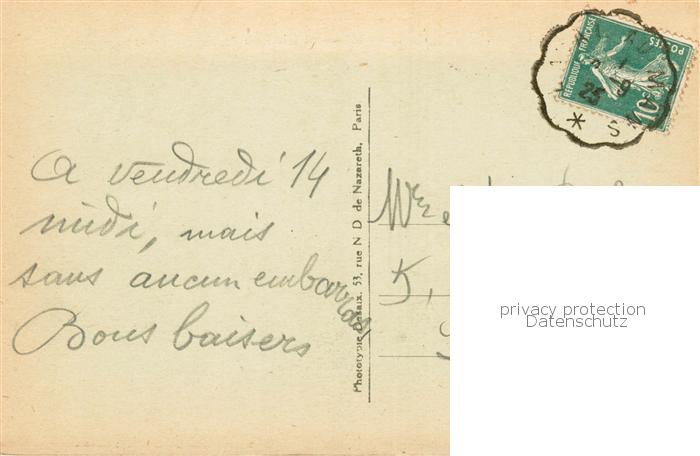 A vendredi 14
midi, mais
sans aucun embarras
Bons baisers
Phototypie Desaix. 53, rue N D de Nazareth, Paris
5,
REPUBLIQUE FRANÇAISE
POSTES
10c
25
privacy protection
Datenschutz